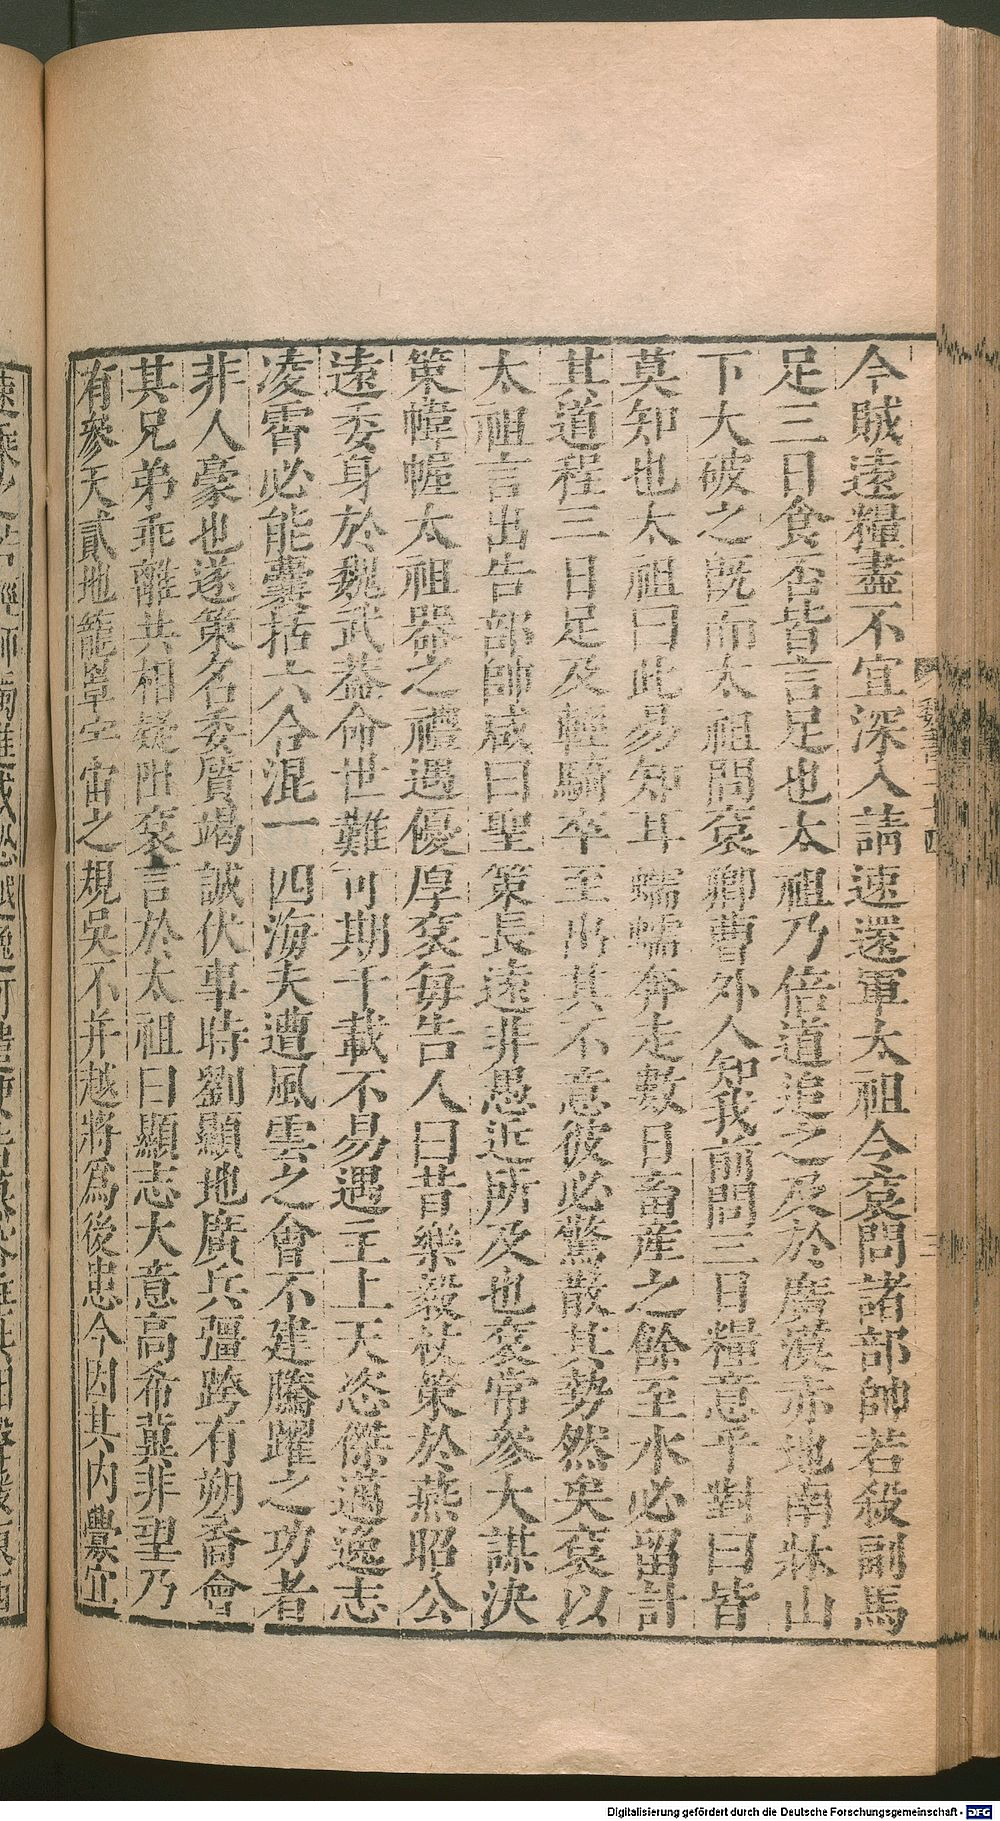 今賊遠糧盡不宜深入請速還軍太祖令袞問諸部帥若殺副馬
足三日食否皆言足也太祖乃倍道追之及於廣漠赤地南牀山
下大破之既而太祖問袞卿曹外人知我前問三日糧意乎對曰皆
莫知也太祖曰此易知耳蠕蠕奔走數日畜産之餘至水必留計
其道程三日足及輕騎卒至出其不意彼必驚散其勢然矣袞以
太祖言出告部帥咸曰聖策長遠非愚近所及也袞常參大謀決
策幃幄太祖器之禮遇優厚袞每告人曰昔樂毅杖策於燕昭公
遠委身於魏武蓋命世難可期千載不易遇主上天恣傑邁逸志
凌霄必能囊括六合混一四海夫遭風雲之會不建騰躍之功者
非人豪也遂策名委質竭誠伏事時劉顯地廣兵彊跨有朔裔會
其兄弟乖離共相疑阻袞言於太祖曰顯志大意高希冀非望乃
有參天貳地籠罩宇宙之規吳不并越將爲後患今因其內釁宜
魏書二十四
三